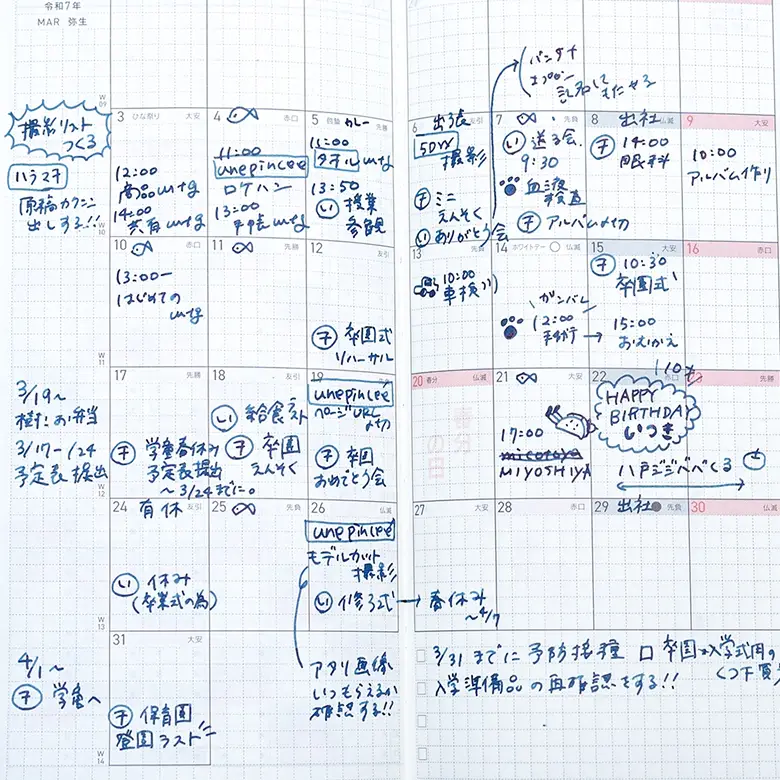 令和7年
MAR 弥生
バンダナ
記名して
もたせる
W
09
撮影リスト
つくる
ハラスチ
原稿カクニン
出しする!!
W
10
3 ひな祭り 大安
12:00
商品mtg
14:00
共有mtg
4 赤口
11:00
unepincée
ロケハン
13:00
手帳mtg
5 啓蟄 カレー 先勝
11:00
タオルmtg
13:50
い 授業
参観
6 出張 友引
50W
撮影
チ ミニ
えんそく
い ありがとう会
7 先負
い 送る会
9:30
血液
検査
チ アルバム〆切
8 出社 仏滅
チ 14:00
眼科
9 大安
10:00
アルバム作り
10 赤口
13:00ー
はじめての
mtg
11 先勝
12 友引
チ 卒園式
リハーサル
W
11
13 先負
10:00
車検
14 ホワイトデー 仏滅
ガンバレ
12:00
手術
15 大安
チ 10:30
卒園式
15:00
おむかえ
16 赤口
3/19〜
樹：お弁当
3/17ー/24
予定表提出
W
12
17 先勝
チ 学童春休み
予定表提出
〜3/24までに。
18 友引
い 給食ラスト
チ 卒園
えんそく
19 先負
unepincée
ページURL
〆切
チ 卒園
おめでとう会
20 春分 仏滅
春分の日
21 大安
17:00
MIYOSHIYA
22
HAPPY
BIRTHDAY
いつき
八戸ジジババくる
24 有休 友引
い 休み
(卒業式の為)
25 先負
26 仏滅
unepincée
モデルカット
撮影
い 修了式 → 春休み
〜4/7
アタリ画像
いつもらえるか
確認する!!
W
13
27 大安
28 赤口
29 出社 先負
30 仏滅
4/1〜
チ 学童へ
W
14
31 大安
チ 保育園
登園ラスト
3/31までに予防接種 □ 卒園、入学式用の
くつ下買う
入学準備品の再確認をする!!